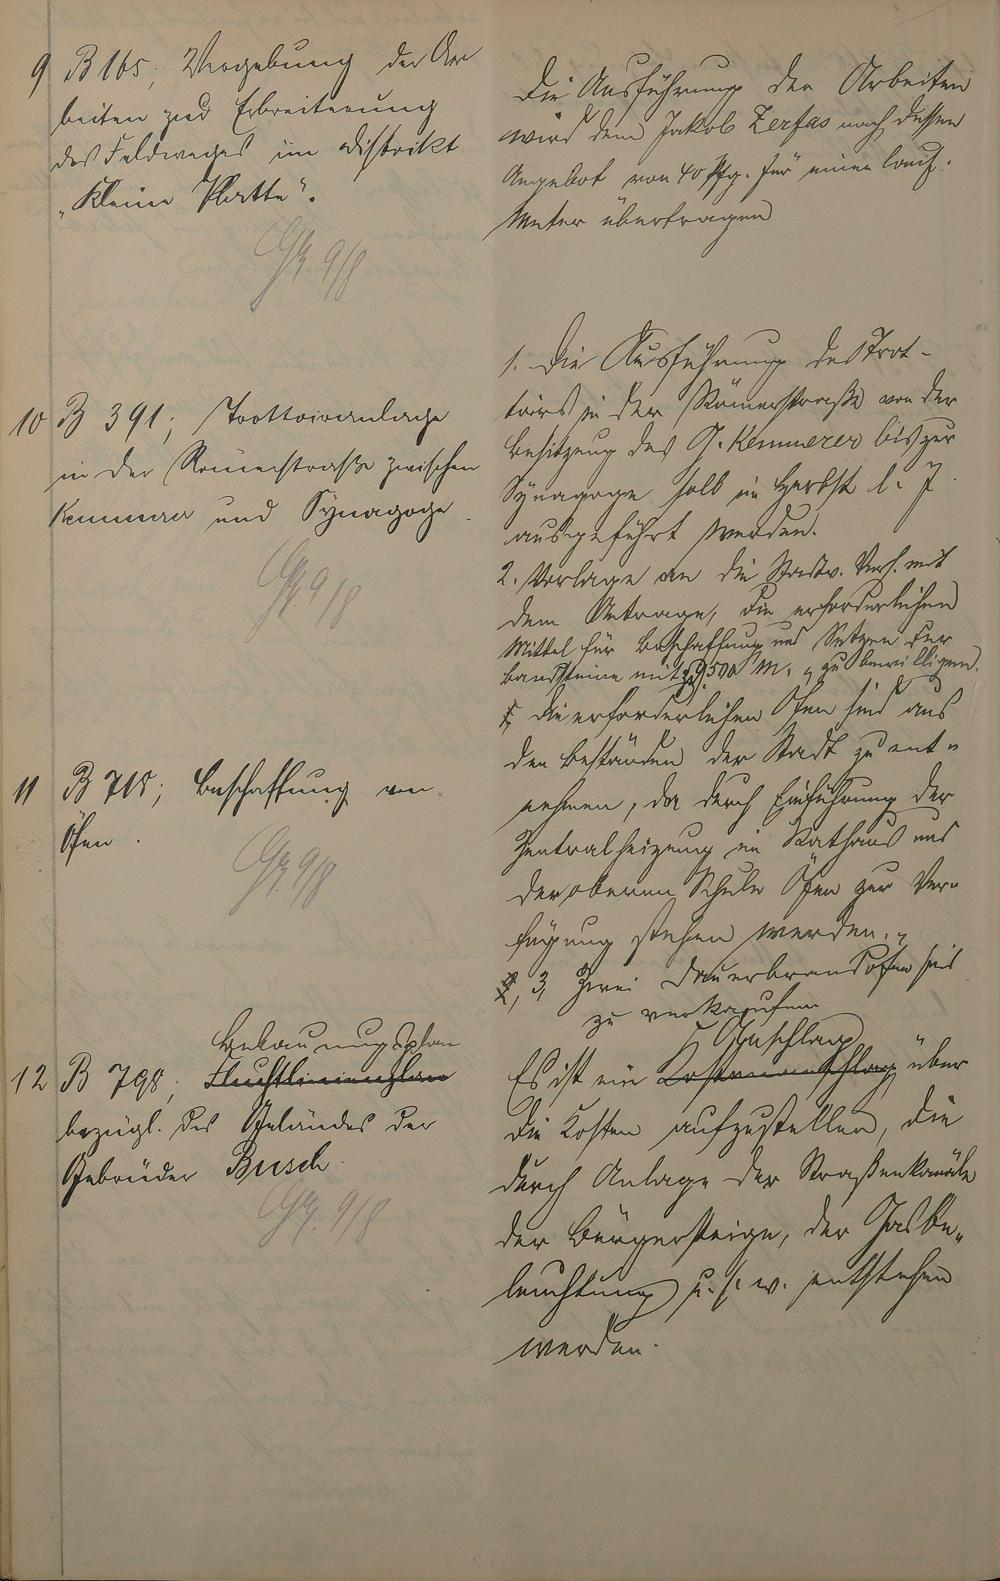 9 B 165, Vergebung der Ar
beiten zur Erbreiterung
des Feldweges im Distrikt
"Kleine Platte".
Die Ausführung der Arbeiten
wird dem Jakob Zerfas nach dessen
Angebot von 40 Pfg. für einen laufd.
Meter übertragen
9/8
10 B 391; Trottoiranlage
in der Römerstraße zwischen
Kemmerer und Synagoge.
9/8
1. Die Ausführung des Trot-
toirs in der Römerstraße von der
Besitzung des J. Kemmerer bis zur
Synagoge soll im Herbst l. J.
ausgeführt werden.
2. Vorlage an die Stadtv. Vers. mit
dem Antrage, die erforderlichen
Mittel für Beschaffung und Setzen der
Bandsteine mit 500 M. zu bewilligen.
11 B 718; Beschaffung von
Öfen.
9/8
1, Die erforderlichen Öfen sind aus
den Beständen der Stadt zu ent-
nehmen, da durch Einführung der
Zentralheizung im Rathaus und
der oberen Schule Öfen zur Ver-
fügung stehen werden.
2, Zwei Dauerbrandöfen sind
zu verkaufen
12 B 798, Bebauungsplan
Fluchtlinienplan
bezügl. des Geländes der
Gebrüder Busch.
9/8
Anschlag
Es ist ein Kostenanschlag über
die Kosten aufzustellen, die
durch Anlage der Straßenkanäle
der Bürgersteige, der Gasbe-
leuchtung u. s. w. entstehen
werden.